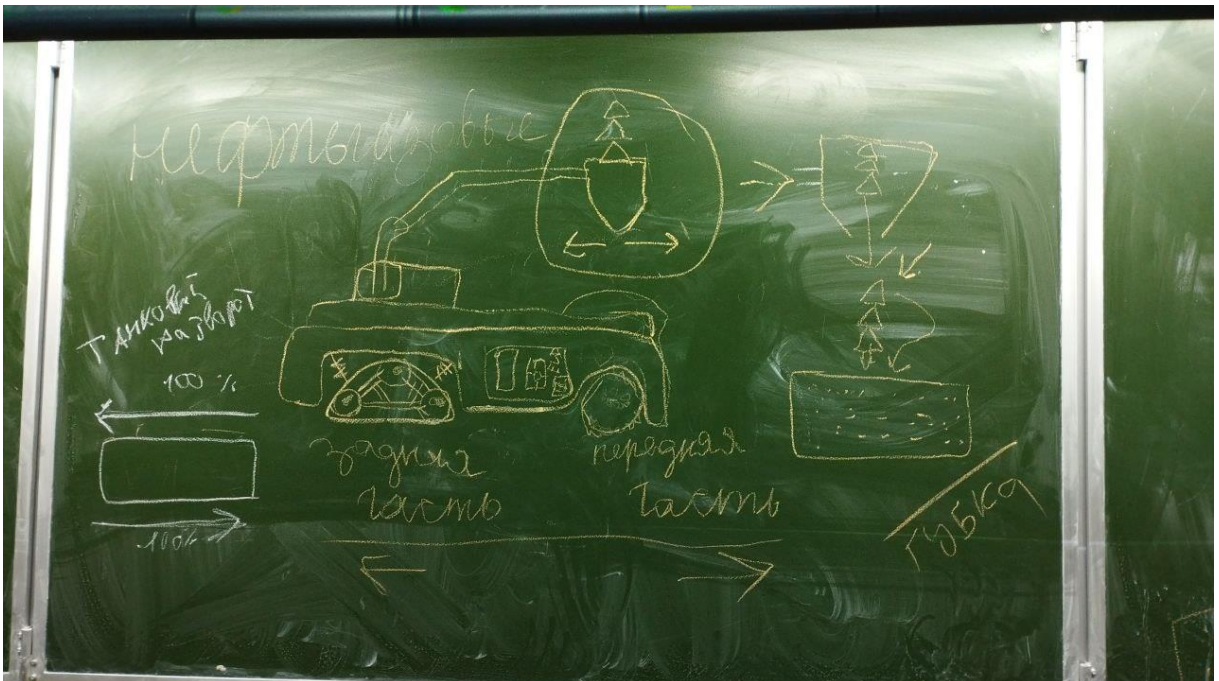 нефтыгазовые
ТАНКОВЫЙ
разворот
100 %
100%
задняя
часть
передняя
часть
ГУБКА